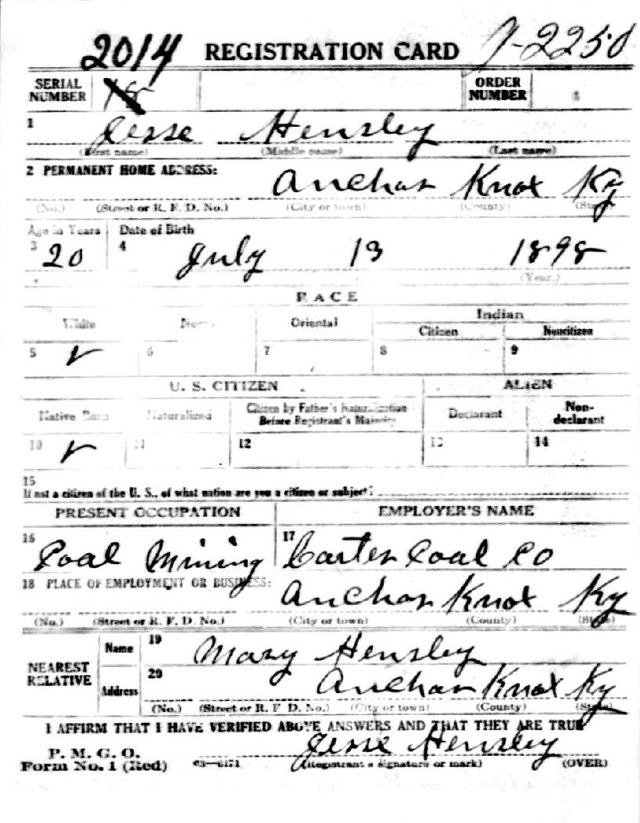 2014 REGISTRATION CARD
SERIAL NUMBER ORDER NUMBER
1 Jesse Hensley
(First name) (Middle name) (Last name)
2 PERMANENT HOME ADDRESS: Anchor Knox Ky
(No.) (Street or R. F. D. No.) (City or town) (County) (State)
Age in Years Date of Birth
3 20 4 July 13 1898
(Year.)
RACE
White Oriental Indian
Citizen Noncitizen
5 ✓ 6 7 8 9
U. S. CITIZEN ALIEN
Native Born Naturalized Citizen by Father's Naturalization Before Registrant's Majority Declarant Non-declarant
10 ✓ 11 12 13 14
15
If not a citizen of the U. S., of what nation are you a citizen or subject?
PRESENT OCCUPATION EMPLOYER'S NAME
16 Coal Mining 17 Carter Coal Co
18 PLACE OF EMPLOYMENT OR BUSINESS: Anchor Knox Ky
(No.) (Street or R. F. D. No.) (City or town) (County) (State)
NEAREST RELATIVE Name 19 Mary Hensley
Address 20 Anchor Knox Ky
(No.) (Street or R. F. D. No.) (City or town) (County) (State)
I AFFIRM THAT I HAVE VERIFIED ABOVE ANSWERS AND THAT THEY ARE TRUE
P. M. G. O. Jesse Hensley
Form No. 1 (Red) 03—6171 (Registrant's signature or mark) (OVER)